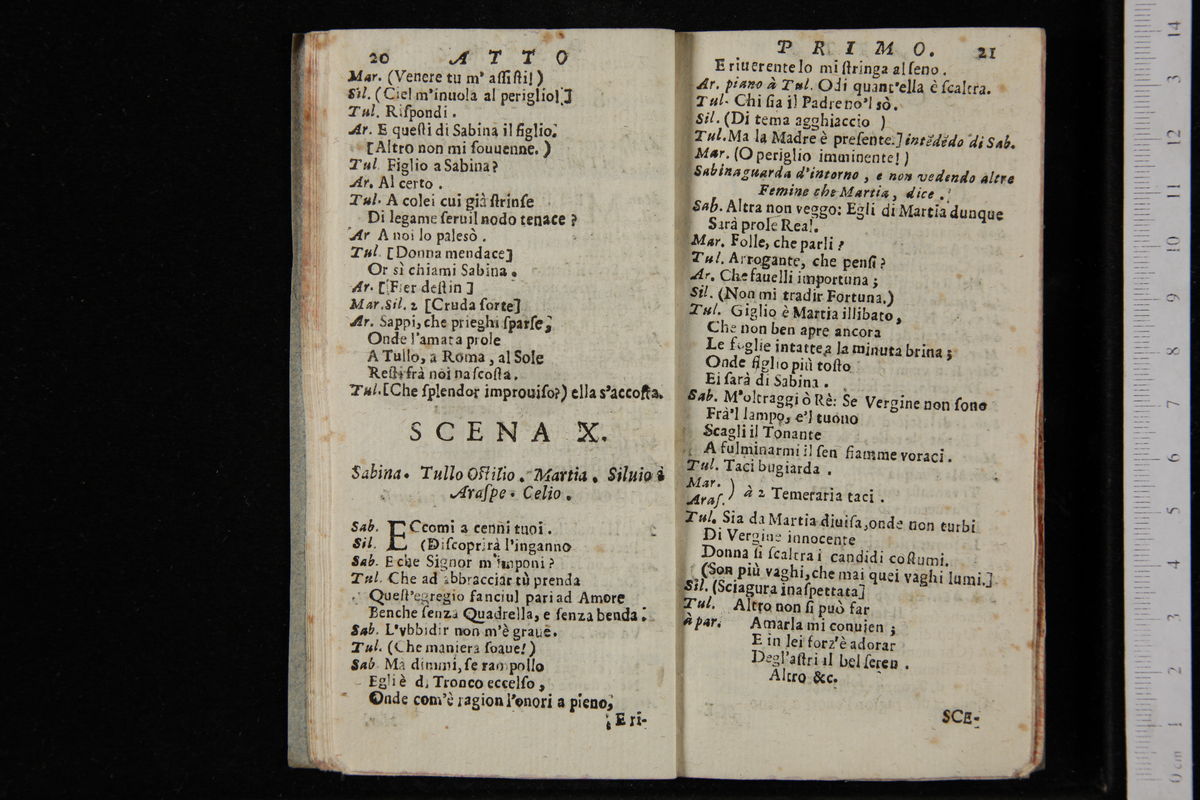 20 ATTO
Mar. (Venere tu m' aſſiſti!)
Sil. (Ciel m'inuola al periglio!]
Tul. Riſpondi.
Ar. E queſti di Sabina il figlio.
[Altro non mi ſouuenne.)
Tul. Figlio a Sabina?
Ar. Al certo.
Tul. A colei cui già ſtrinſe
Di legame ſeruil nodo tenace?
Ar A noi lo palesò.
Tul. [Donna mendace]
Or sì chiami Sabina.
Ar. [Fier deſtin]
Mar.Sil. 2 [Cruda ſorte]
Ar. Sappi, che prieghi ſparſe,
Onde l'amata prole
A Tullo, a Roma, al Sole
Reſti frà noi naſcoſta.
Tul. [Che ſplendor improuiſo?) ella s'accoſta.
SCENA X.
Sabina. Tullo Oſtilio. Martia. Siluio è
Araſpe. Celio.
Sab. ECcomi a cenni tuoi.
Sil. (Diſcoprirà l'inganno
Sab. E che Signor m'imponi?
Tul. Che ad abbracciar tù prenda
Queſt'egregio fanciul pari ad Amore
Benche ſenza Quadrella, e ſenza benda.
Sab. L'vbbidir non m'è graue.
Tul. (Che maniera ſoaue!)
Sab Ma dimmi, ſe rampollo
Egli è di Tronco eccelſo,
Onde com'è ragion l'onori a pieno,
E ri-
PRIMO. 21
E riuerente lo mi ſtringa al ſeno.
Ar. piano à Tul. Odi quant'ella è ſcaltra.
Tul. Chi ſia il Padre no'l sò.
Sil. (Di tema agghiaccio )
Tul. Ma la Madre è preſente.] intēdēdo di Sab.
Mar. (O periglio imminente!)
Sabina guarda d'intorno, e non vedendo altre
Femine che Martia, dice.
Sab. Altra non veggo: Egli di Martia dunque
Sarà prole Real.
Mar. Folle, che parli?
Tul. Arrogante, che penſi?
Ar. Che fauelli importuna;
Sil. (Non mi tradir Fortuna.)
Tul. Giglio è Martia illibato,
Che non ben apre ancora
Le foglie intatte a la minuta brina;
Onde figlio più toſto
Ei ſarà di Sabina.
Sab. M'oltraggi ò Rè: Se Vergine non ſono
Frà'l lampo, e'l tuono
Scagli il Tonante
A fulminarmi il ſen fiamme voraci.
Tul. Taci bugiarda.
Mar. )
Araſ. ) à 2 Temeraria taci.
Tul. Sia da Martia diuiſa, onde non turbi
Di Vergine innocente
Donna ſi ſcaltra i candidi coſtumi.
(Son più vaghi, che mai quei vaghi lumi.]
Sil. (Sciagura inaſpettata]
Tul. Altro non ſi può far
à par. Amarla mi conuien;
E in lei forz'è adorar
Degl'aſtri il bel ſeren.
Altro &c.
SCE-